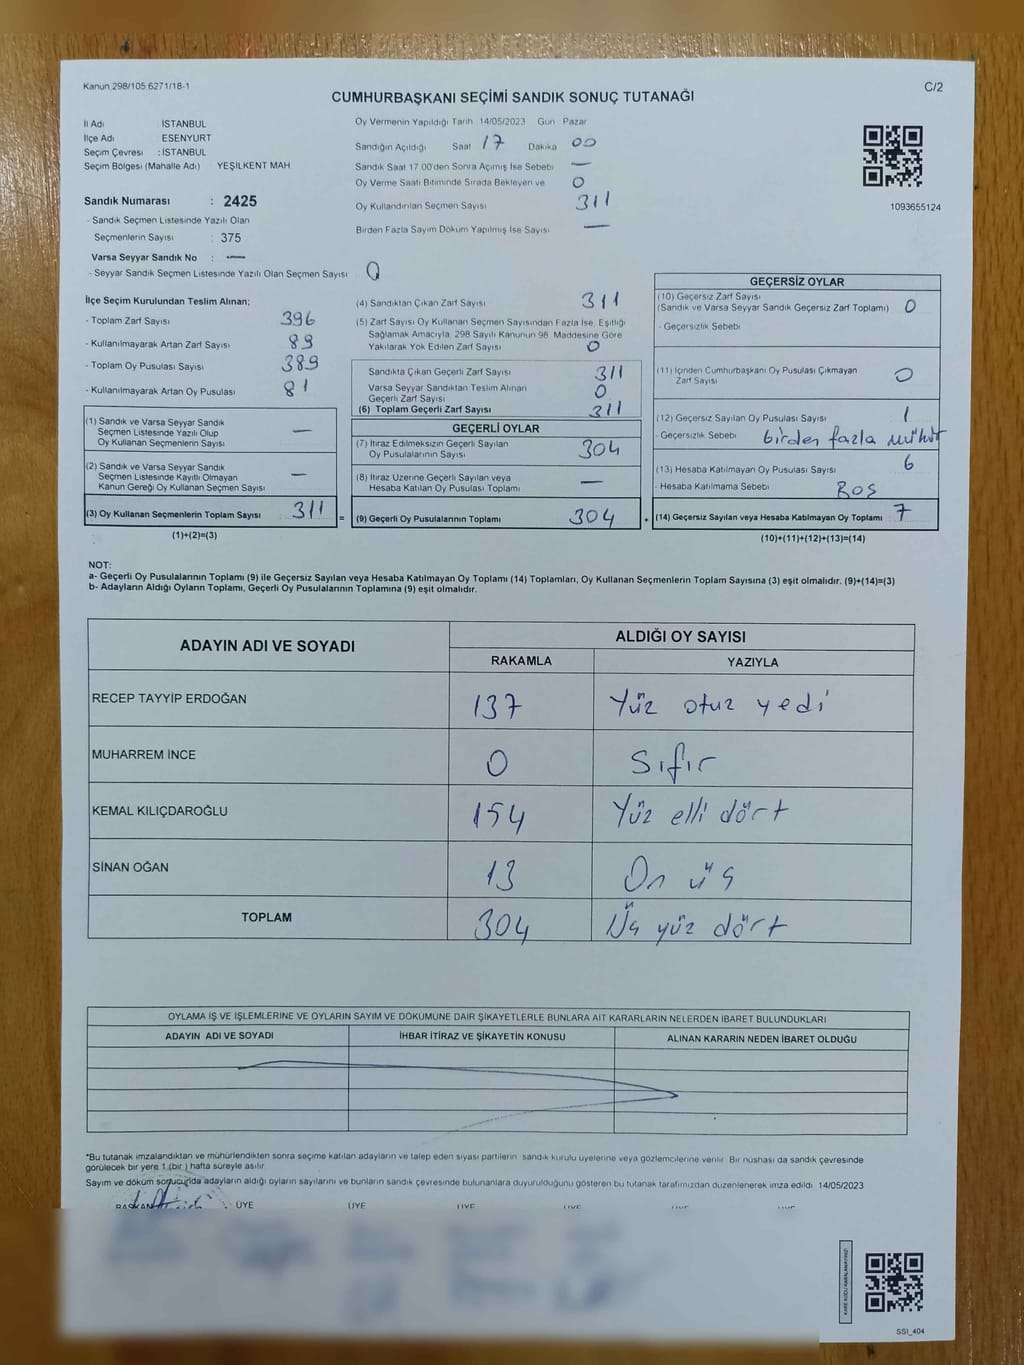 Kanun 298/105,6271/18-1
C/2
CUMHURBAŞKANI SEÇİMİ SANDIK SONUÇ TUTANAĞI
İl Adı İSTANBUL
İlçe Adı ESENYURT
Seçim Çevresi : İSTANBUL
Seçim Bölgesi (Mahalle Adı) YEŞİLKENT MAH
Sandık Numarası : 2425
- Sandık Seçmen Listesinde Yazılı Olan
Seçmenlerin Sayısı : 375
Varsa Seyyar Sandık No : —
- Seyyar Sandık Seçmen Listesinde Yazılı Olan Seçmen Sayısı 0
Oy Vermenin Yapıldığı Tarih 14/05/2023 Gün Pazar
Sandığın Açıldığı Saat 17 Dakika 00
Sandık Saat 17.00'den Sonra Açılmış İse Sebebi —
Oy Verme Saati Bitiminde Sırada Bekleyen ve 0
Oy Kullandırılan Seçmen Sayısı 311
Birden Fazla Sayım Döküm Yapılmış İse Sayısı —
1093655124
İlçe Seçim Kurulundan Teslim Alınan;
- Toplam Zarf Sayısı 396
- Kullanılmayarak Artan Zarf Sayısı 89
- Toplam Oy Pusulası Sayısı 389
- Kullanılmayarak Artan Oy Pusulası 81
(1) Sandık ve Varsa Seyyar Sandık
Seçmen Listesinde Yazılı Olup
Oy Kullanan Seçmenlerin Sayısı —
(2) Sandık ve Varsa Seyyar Sandık
Seçmen Listesinde Kayıtlı Olmayan
Kanun Gereği Oy Kullanan Seçmen Sayısı —
(3) Oy Kullanan Seçmenlerin Toplam Sayısı 311
(1)+(2)=(3)
(4) Sandıktan Çıkan Zarf Sayısı 311
(5) Zarf Sayısı Oy Kullanan Seçmen Sayısından Fazla İse, Eşitliği
Sağlamak Amacıyla, 298 Sayılı Kanunun 98. Maddesine Göre
Yakılarak Yok Edilen Zarf Sayısı 0
Sandıkta Çıkan Geçerli Zarf Sayısı 311
Varsa Seyyar Sandıktan Teslim Alınan
Geçerli Zarf Sayısı 0
(6) Toplam Geçerli Zarf Sayısı 311
GEÇERLİ OYLAR
(7) İtiraz Edilmeksizin Geçerli Sayılan
Oy Pusulalarının Sayısı 304
(8) İtiraz Üzerine Geçerli Sayılan veya
Hesaba Katılan Oy Pusulası Toplamı —
= (9) Geçerli Oy Pusulalarının Toplamı 304
GEÇERSİZ OYLAR
(10) Geçersiz Zarf Sayısı
(Sandık ve Varsa Seyyar Sandık Geçersiz Zarf Toplamı) 0
- Geçersizlik Sebebi
(11) İçinden Cumhurbaşkanı Oy Pusulası Çıkmayan
Zarf Sayısı 0
(12) Geçersiz Sayılan Oy Pusulası Sayısı 1
- Geçersizlik Sebebi birden fazla mühür
(13) Hesaba Katılmayan Oy Pusulası Sayısı 6
- Hesaba Katılmama Sebebi Boş
+ (14) Geçersiz Sayılan veya Hesaba Katılmayan Oy Toplamı 7
(10)+(11)+(12)+(13)=(14)
NOT:
a- Geçerli Oy Pusulalarının Toplamı (9) ile Geçersiz Sayılan veya Hesaba Katılmayan Oy Toplamı (14) Toplamları, Oy Kullanan Seçmenlerin Toplam Sayısına (3) eşit olmalıdır. (9)+(14)=(3)
b- Adayların Aldığı Oyların Toplamı, Geçerli Oy Pusulalarının Toplamına (9) eşit olmalıdır.
ADAYIN ADI VE SOYADI
ALDIĞI OY SAYISI
RAKAMLA YAZIYLA
RECEP TAYYİP ERDOĞAN 137 Yüz otuz yedi
MUHARREM İNCE 0 Sıfır
KEMAL KILIÇDAROĞLU 154 Yüz elli dört
SİNAN OĞAN 13 On üç
TOPLAM 304 Üç yüz dört
OYLAMA İŞ VE İŞLEMLERİNE VE OYLARIN SAYIM VE DÖKÜMÜNE DAİR ŞİKAYETLERLE BUNLARA AİT KARARLARIN NELERDEN İBARET BULUNDUKLARI
ADAYIN ADI VE SOYADI İHBAR İTİRAZ VE ŞİKAYETİN KONUSU ALINAN KARARIN NEDEN İBARET OLDUĞU
*Bu tutanak imzalandıktan ve mühürlendikten sonra seçime katılan adayların ve talep eden siyasi partilerin sandık kurulu üyelerine veya gözlemcilerine verilir. Bir nüshası da sandık çevresinde
görülecek bir yere 1 (bir) hafta süreyle asılır.
Sayım ve döküm sonucunda adayların aldığı oyların sayılarını ve bunların sandık çevresinde bulunanlara duyurulduğunu gösteren bu tutanak tarafımızdan düzenlenerek imza edildi. 14/05/2023
BAŞKAN ÜYE ÜYE ÜYE ÜYE ÜYE
KARE KODU KARALAMAYINIZ!
SSI_404